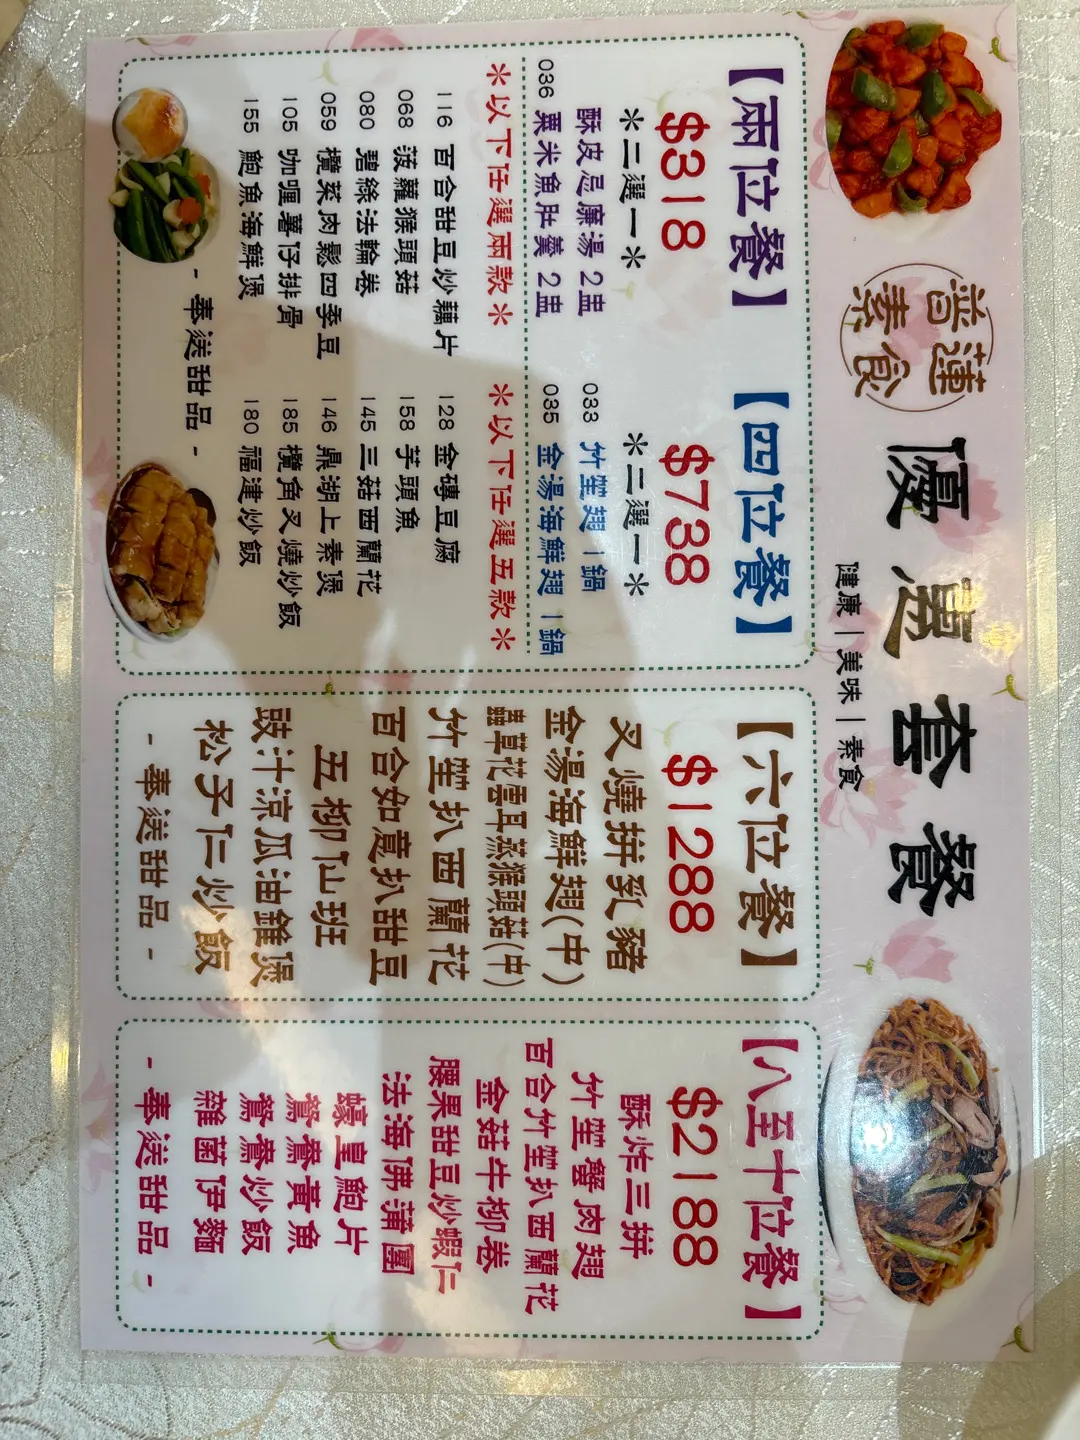 普蓮
素食
優惠套餐
健康 | 美味 | 素食
【兩位餐】
$318
*二選一*
酥皮忌廉湯 2盅
036 粟米魚肚羹 2盅
【四位餐】
$738
*二選一*
033 竹笙翅 1鍋
035 金湯海鮮翅 1鍋
*以下任選兩款*
*以下任選五款*
116 百合甜豆炒藕片
128 金磚豆腐
068 菠蘿猴頭菇
158 芋頭魚
080 碧綠法輪卷
145 三菇西蘭花
059 欖菜肉鬆四季豆
146 鼎湖上素煲
105 咖喱薯仔排骨
185 欖角叉燒炒飯
155 鮑魚海鮮煲
180 福建炒飯
- 奉送甜品 -
【六位餐】
$1288
叉燒拼乳豬
金湯海鮮翅(中)
蟲草花雲耳蒸猴頭菇(中)
竹笙扒西蘭花
百合如意扒甜豆
五柳仙班
豉汁涼瓜油雞煲
松子仁炒飯
- 奉送甜品 -
【八至十位餐】
$2188
酥炸三拼
竹笙蟹肉翅
百合竹笙扒西蘭花
金菇牛柳卷
腰果甜豆炒蝦仁
法海佛蒲團
蠔皇鮑片
鴛鴦黃魚
鴛鴦炒飯
雜菌伊麵
- 奉送甜品 -